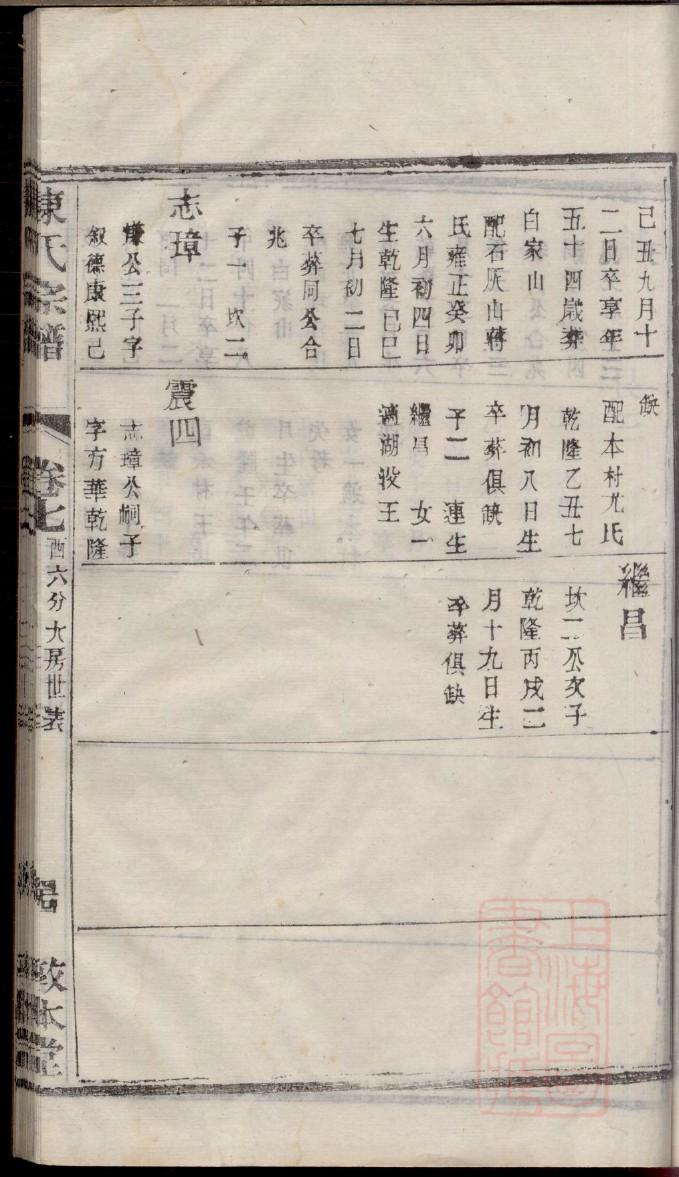 己丑九月十
二日卒享年
五十四歲葬
白家山
配石灰山蔣
氏雍正癸卯
六月初四日
生乾隆己巳
七月初二日
卒葬同公合
兆
子一 坎二
志璋
公三子字
叙德康熙己
缺
配本村尤氏
乾隆乙丑七
月初八日生
卒葬俱缺
子二 連生
繼昌 女一
適湖汊王
震四
志璋公嗣子
字方華乾隆
繼昌
坎二公次子
乾隆丙戌二
月十九日生
卒葬俱缺
氏宗譜
卷七
西六分大房世表
敦本堂
上海圖書館藏